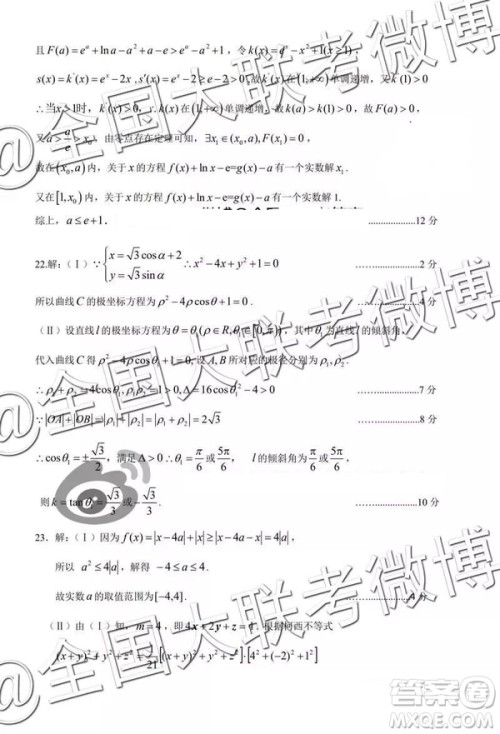 且F(a)=eᵃ+ln a-a²+a-e>eᵃ-a²+1，令k(x)=eˣ-x²+1(x>1)，
s(x)=k′(x)=eˣ-2x,s′(x)=eˣ-2≥e-2>0,故k′(x)在(1,+∞)单调递增，又k′(1)>0
∴当x>1时，k′(x)>0,∴k(x)在(1,+∞)单调递增，故k(a)>k(1)>0，故F(a)>0
由零点存在定理可知，∃x₁∈(x₀,a),F(x₁)=0，
故在(x₀,a)内，关于x的方程f(x)+ln x-e=g(x)-a有一个实数解x₁.
又在[1,x₀)内，关于x的方程f(x)+ln x-e=g(x)-a有一个实数解1.
综上，a≤e+1. ..................12分
22.解:（Ⅰ）∵{x=√3cosα+2 y=√3sinα ∴x²-4x+y²+1=0 ..................2分
所以曲线C的极坐标方程为ρ²-4ρcosθ+1=0.
（Ⅱ）设直线l的极坐标方程为θ=θ₁(ρ∈R,θ₁∈[0,π))，其中θ₁为直线l的倾斜角，
代入曲线C得ρ²-4ρcosθ₁+1=0,设A,B所对应的极径分别为ρ₁,ρ₂.
∴ρ₁+ρ₂=4cosθ₁,ρ₁ρ₂=1>0,Δ=16cos²θ₁-4>0 ..................7分
∵|OA|+|OB|=|ρ₁|+|ρ₂|=|ρ₁+ρ₂|=2√3 ..................8分
∴cosθ₁=±√3/2，满足Δ>0∴θ₁=π/6或5π/6，l的倾斜角为π/6或5π/6，
则k=tanθ₁=√3/3或-√3/3. ..................10分
23. 解:（Ⅰ）因为f(x)=|x-4a|+|x|≥|x-4a-x|=4|a|，
所以 a²≤4|a|，解得 -4≤a≤4.
故实数a的取值范围为[-4,4]. 4分
（Ⅱ）由（Ⅰ）知，m=4，即4x+2y+z=4. 根据柯西不等式
(x+y)²+y²+z²=1/21[(x+y)²+y²+z²]·[4²+(-2)²+1²]
@全国大联考微博
@全国大联考微博
@全国大联考微博
答案圈
MXQE.COM